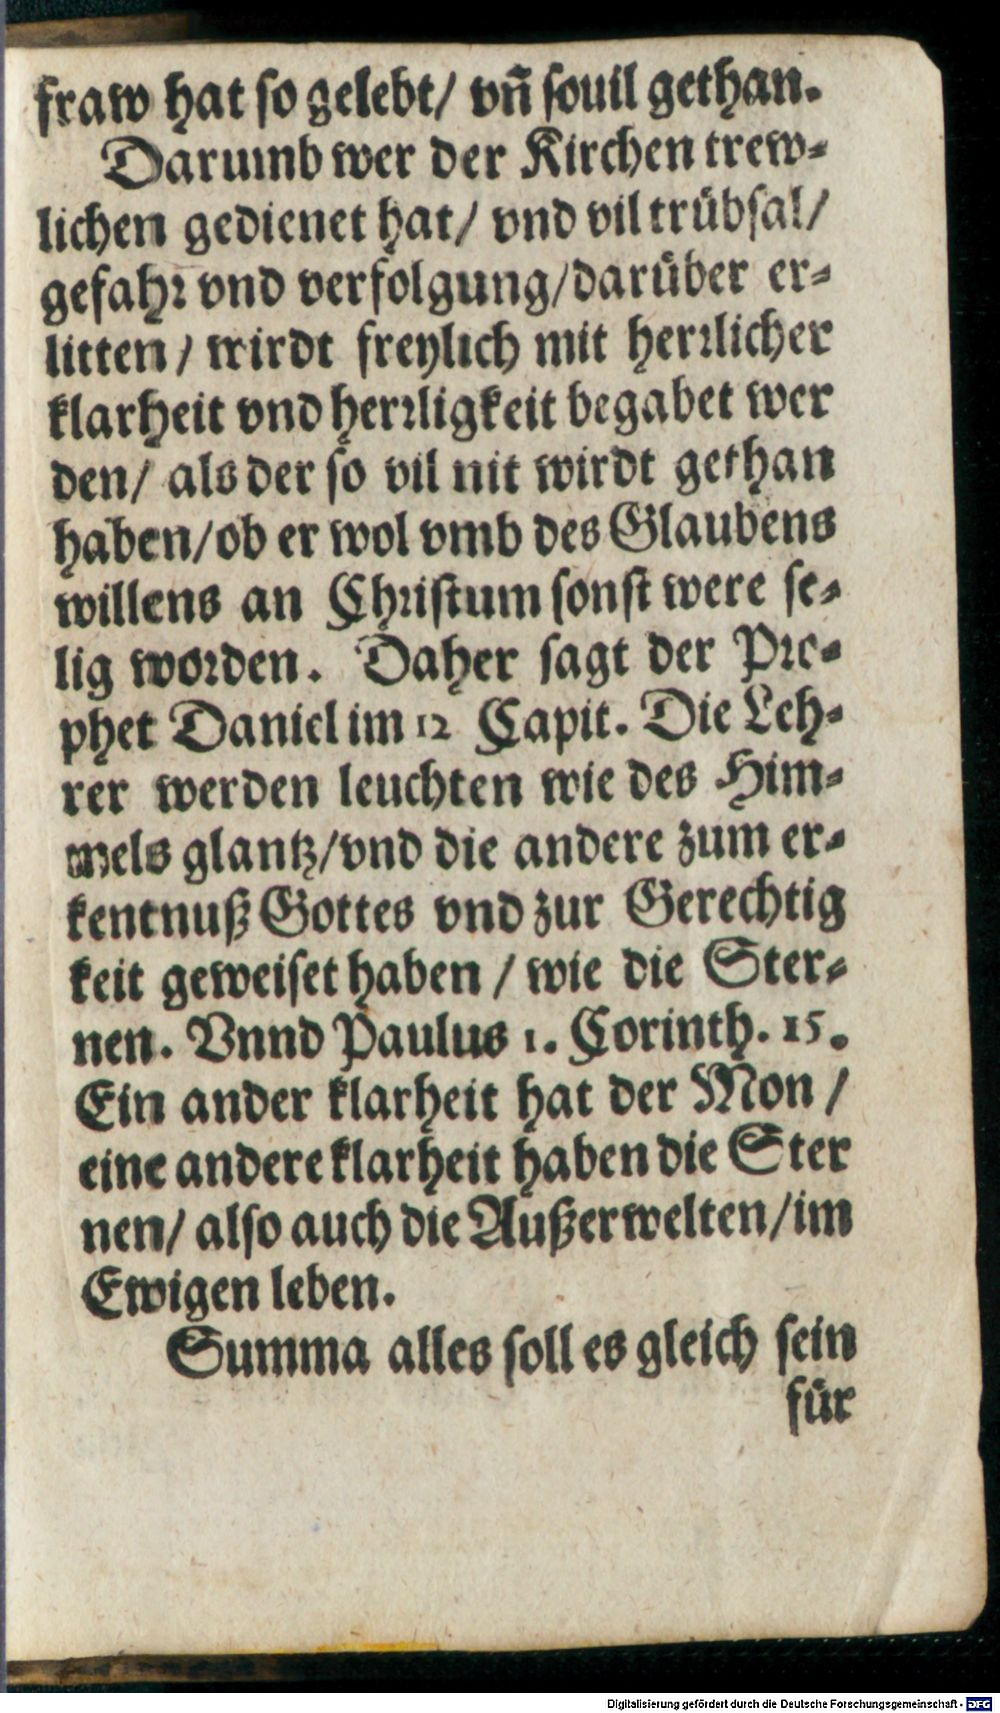 fraw hat so gelebt/ vñ souil gethan.
Darumb wer der Kirchen trew-
lichen gedienet hat/ vnd vil trübsal/
gefahr vnd verfolgung/darüber er-
litten/ wirdt freylich mit herrlicher
klarheit vnd herrligkeit begabet wer
den/ als der so vil nit wirdt gethan
haben/ob er wol vmb des Glaubens
willens an Christum sonst were se-
lig worden. Daher sagt der Pro-
phet Daniel im 12 Capit. Die Leh-
rer werden leuchten wie des Him-
mels glantz/vnd die andere zum er-
kentnuß Gottes vnd zur Gerechtig
keit geweiset haben / wie die Ster-
nen. Vnnd Paulus 1. Corinth. 15.
Ein ander klarheit hat der Mon /
eine andere klarheit haben die Ster
nen/ also auch die Außerwelten/im
Ewigen leben.
Summa alles soll es gleich sein
für
Digitalisierung gefördert durch die Deutsche Forschungsgemeinschaft - DFG